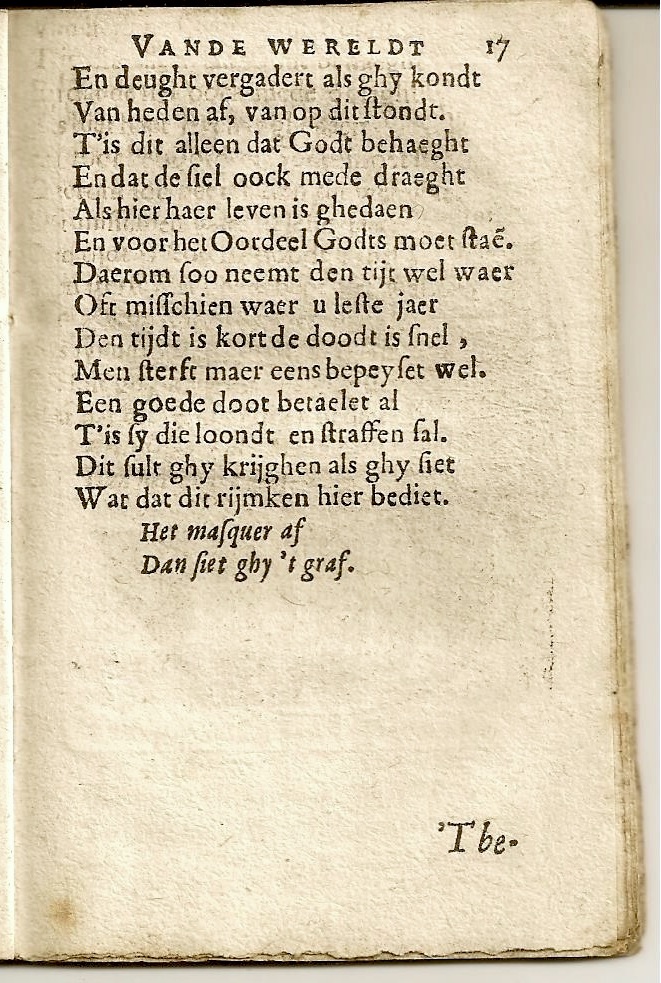 VANDE WERELDT 17
En deught vergadert als ghy kondt
Van heden af, van op dit ſtondt.
T'is dit alleen dat Godt behaeght
En dat de ſiel oock mede draeght
Als hier haer leven is ghedaen
En voor het Oordeel Godts moet ſtaẽ.
Daerom ſoo neemt den tijt wel waer
Oft miſſchien waer u leſte jaer
Den tijdt is kort de doodt is ſnel ,
Men ſterft maer eens bepeyſet wel.
Een goede doot betaelet al
T'is ſy die loondt en ſtraffen ſal.
Dit ſult ghy krijghen als ghy ſiet
Wat dat dit rijmken hier bediet.
Het maſquer af
Dan ſiet ghy 't graf.
'T be-